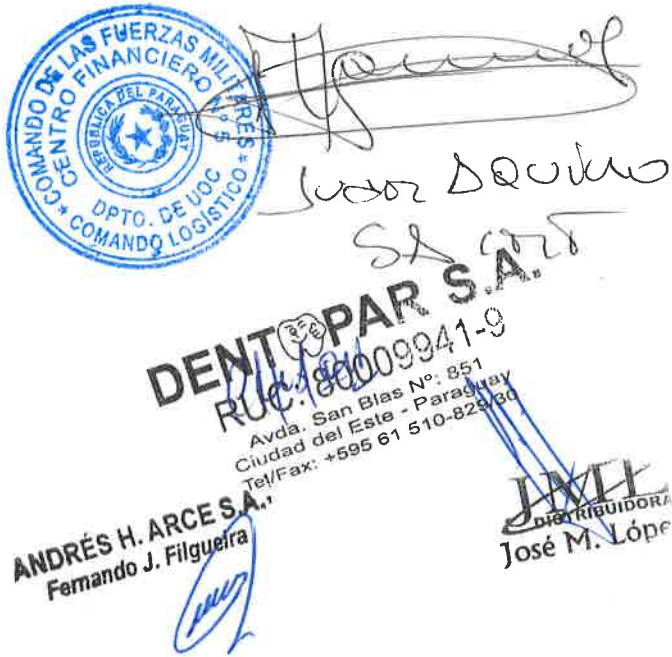 COMANDO DE LAS FUERZAS MILITARES
CENTRO FINANCIERO Nº 5
REPÚBLICA DEL PARAGUAY
DPTO. DE UOC
* COMANDO LOGÍSTICO *
DENTOPAR S.A.
RUC: 80009941-9
Avda. San Blas Nº: 851
Ciudad del Este - Paraguay
Tel/Fax: +595 61 510-829/30
ANDRÉS H. ARCE S.A.
Fernando J. Filgueira
JMI
DISTRIBUIDORA
José M. Lópe